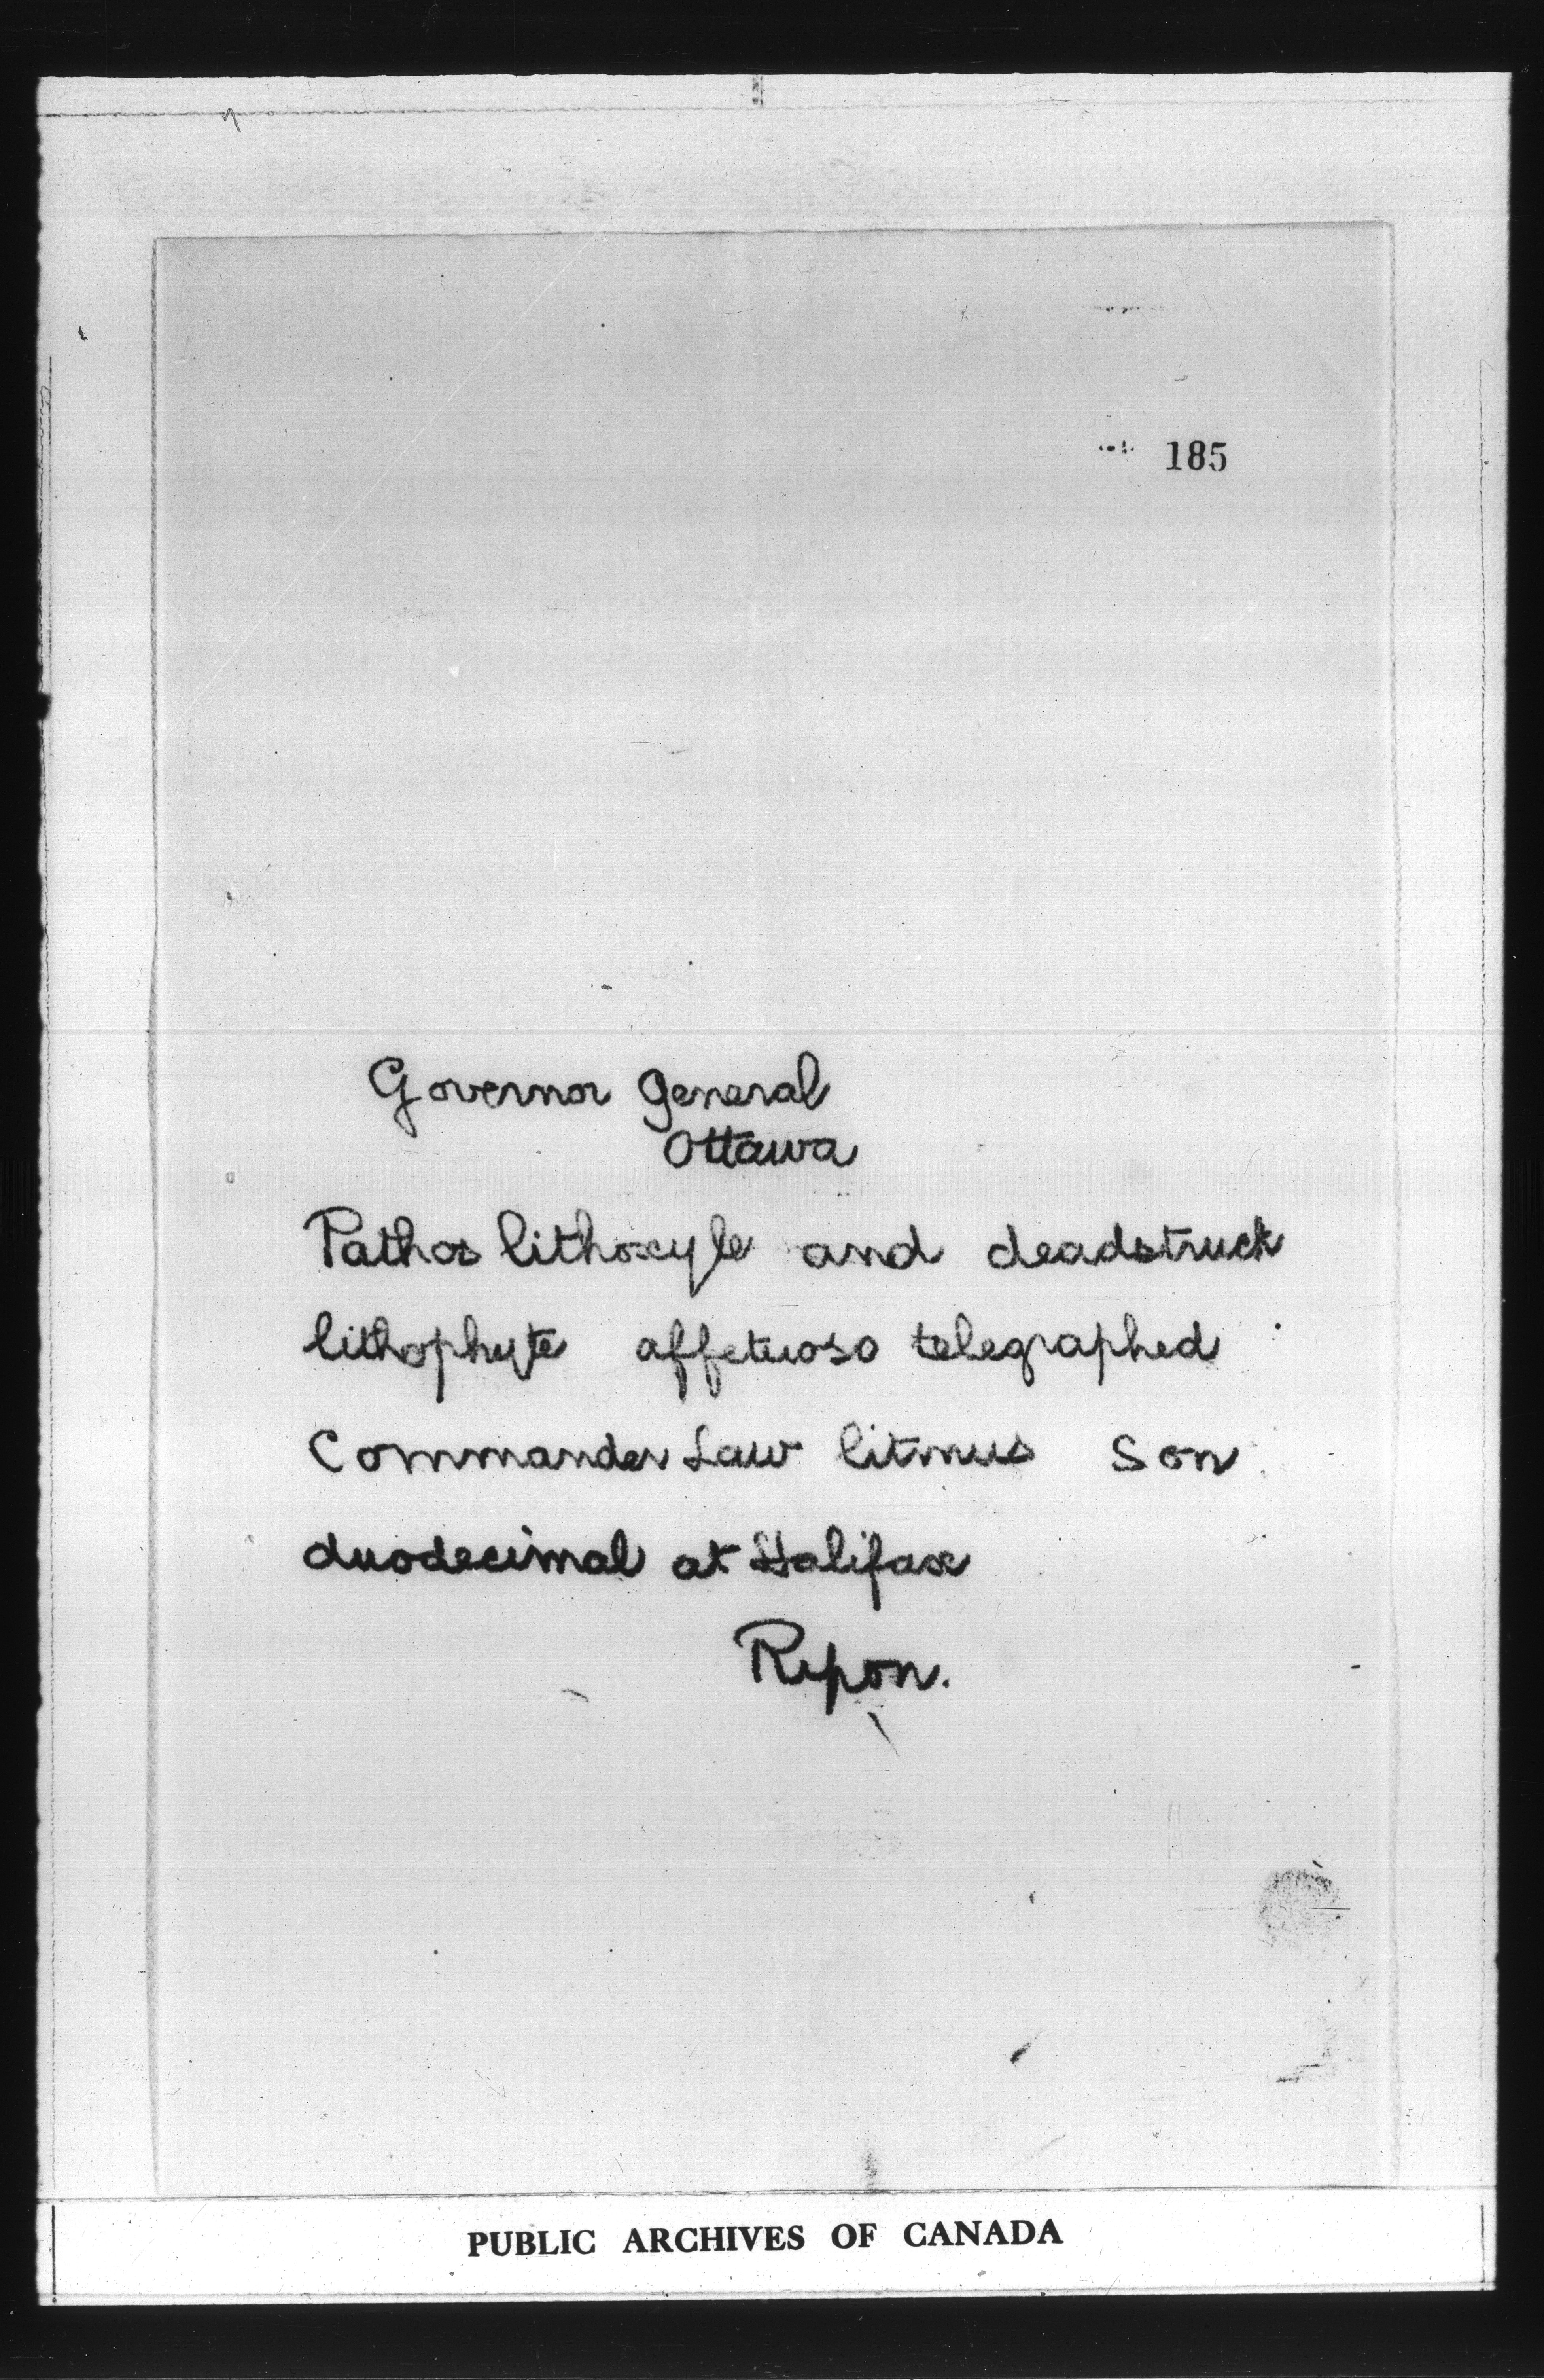 185
Governor General
Ottawa
Pathos lithoxyle and deadstruck
lithophyte affetuoso telegraphed
Commander Law litmus son
duodecimal at Halifax
Ripon.
PUBLIC ARCHIVES OF CANADA